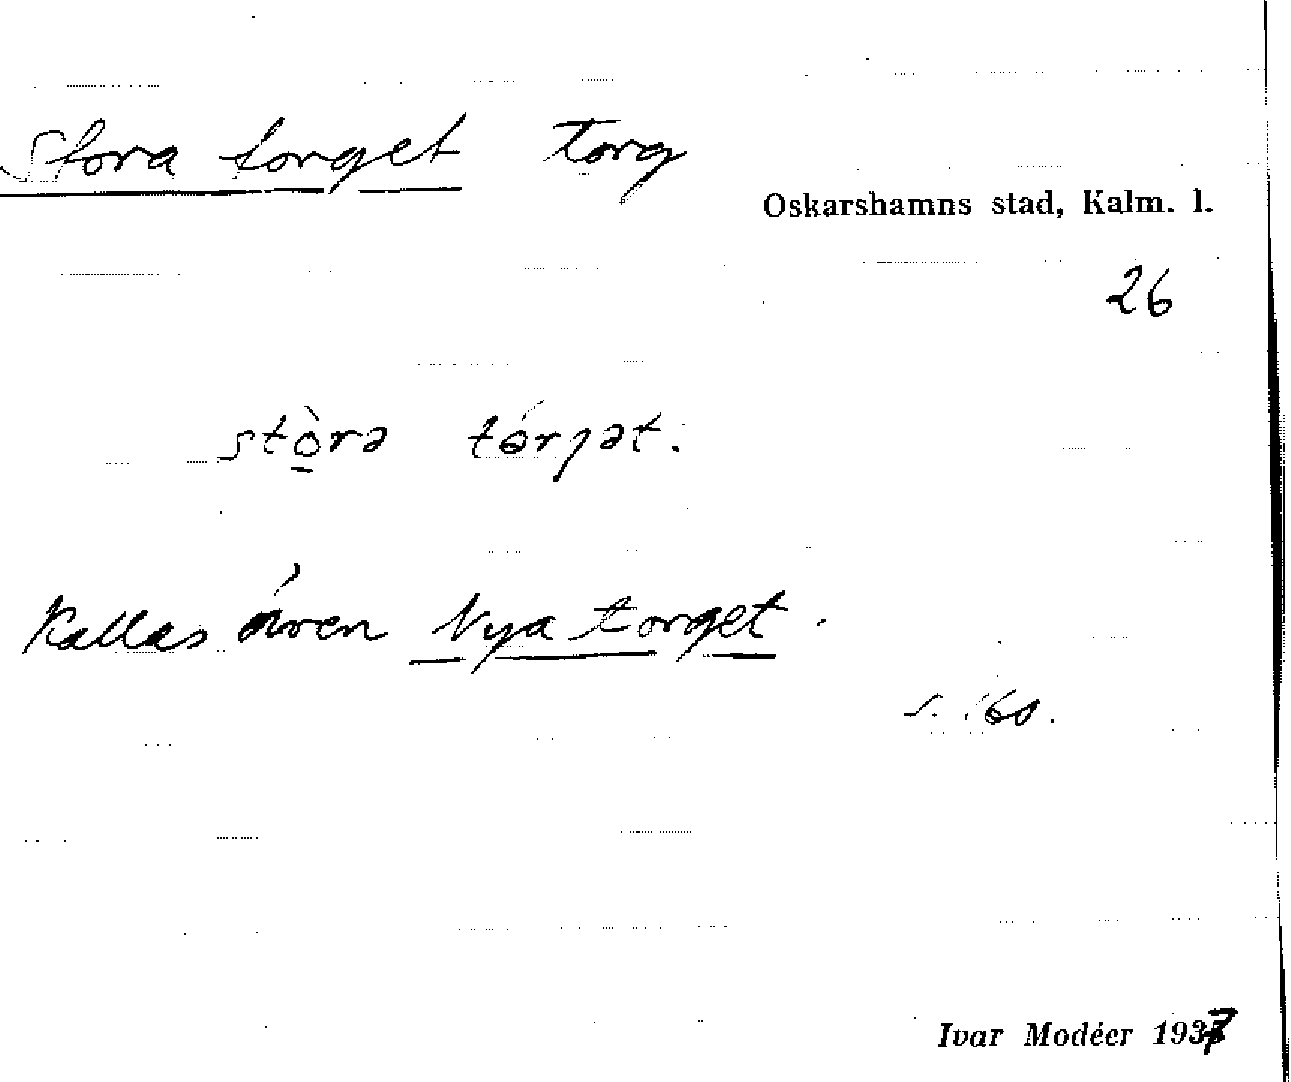 Stora torget Torg
Oskarshamns stad, Kalm. l.
26
stò̠rə tórjət.
Kallas även Nya torget.
s.
Ivar Modéer 1937